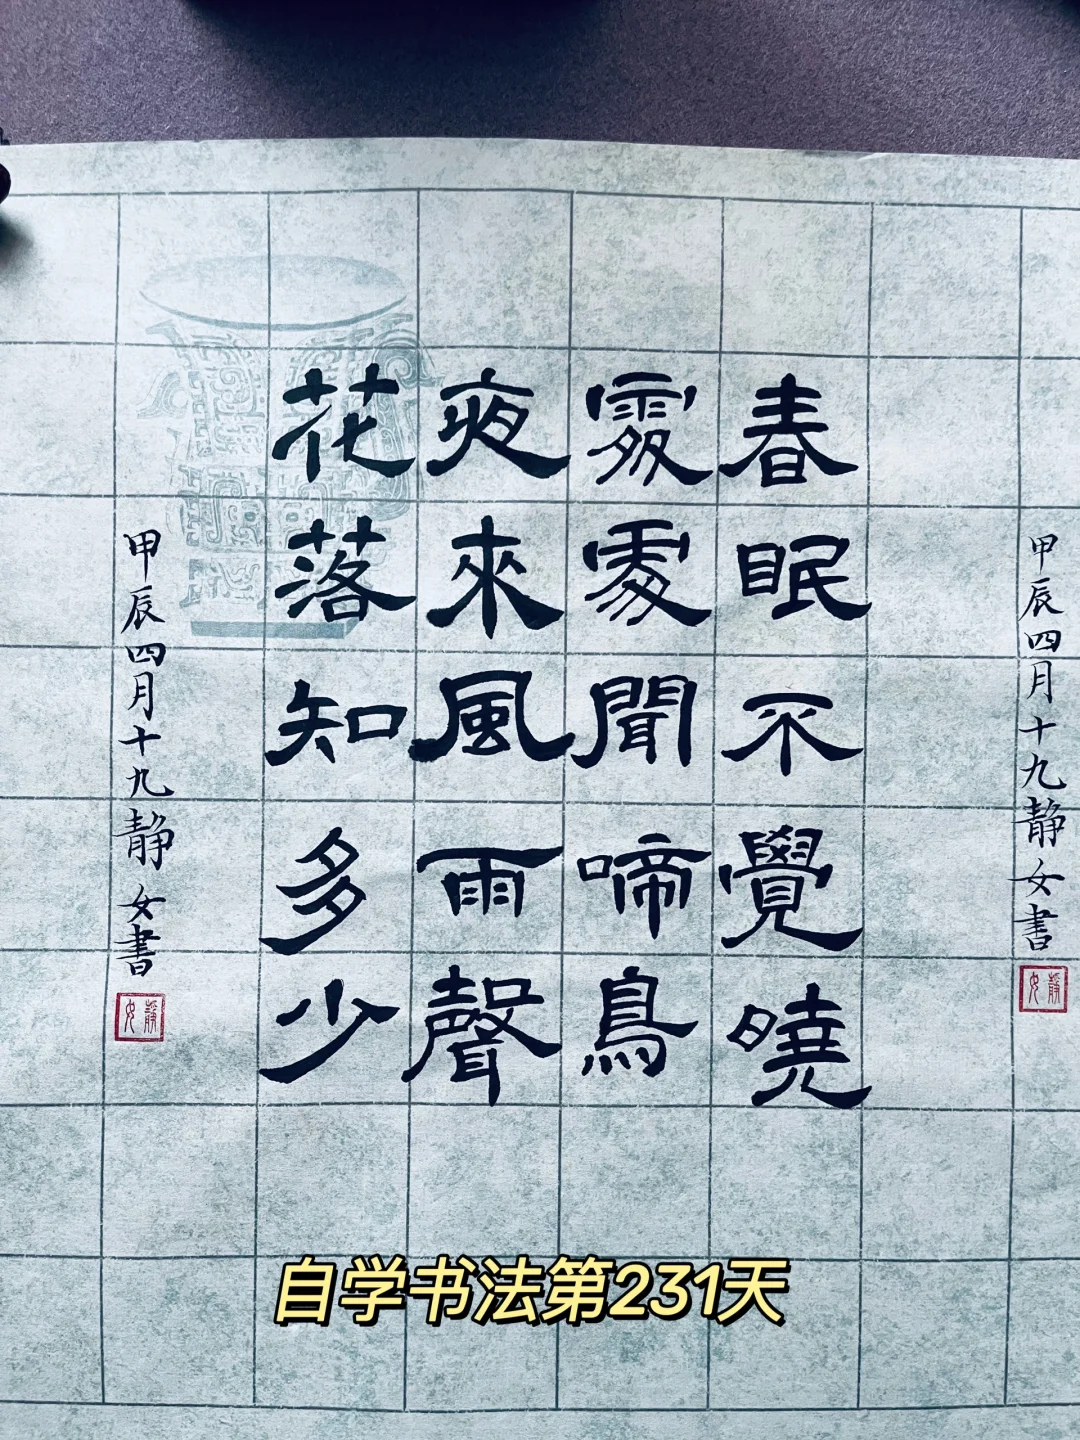 甲辰四月十九静女書
靜女
春眠不覺曉
處處聞啼鳥
夜來風雨聲
花落知多少
甲辰四月十九静女書
靜女
自学书法第231天